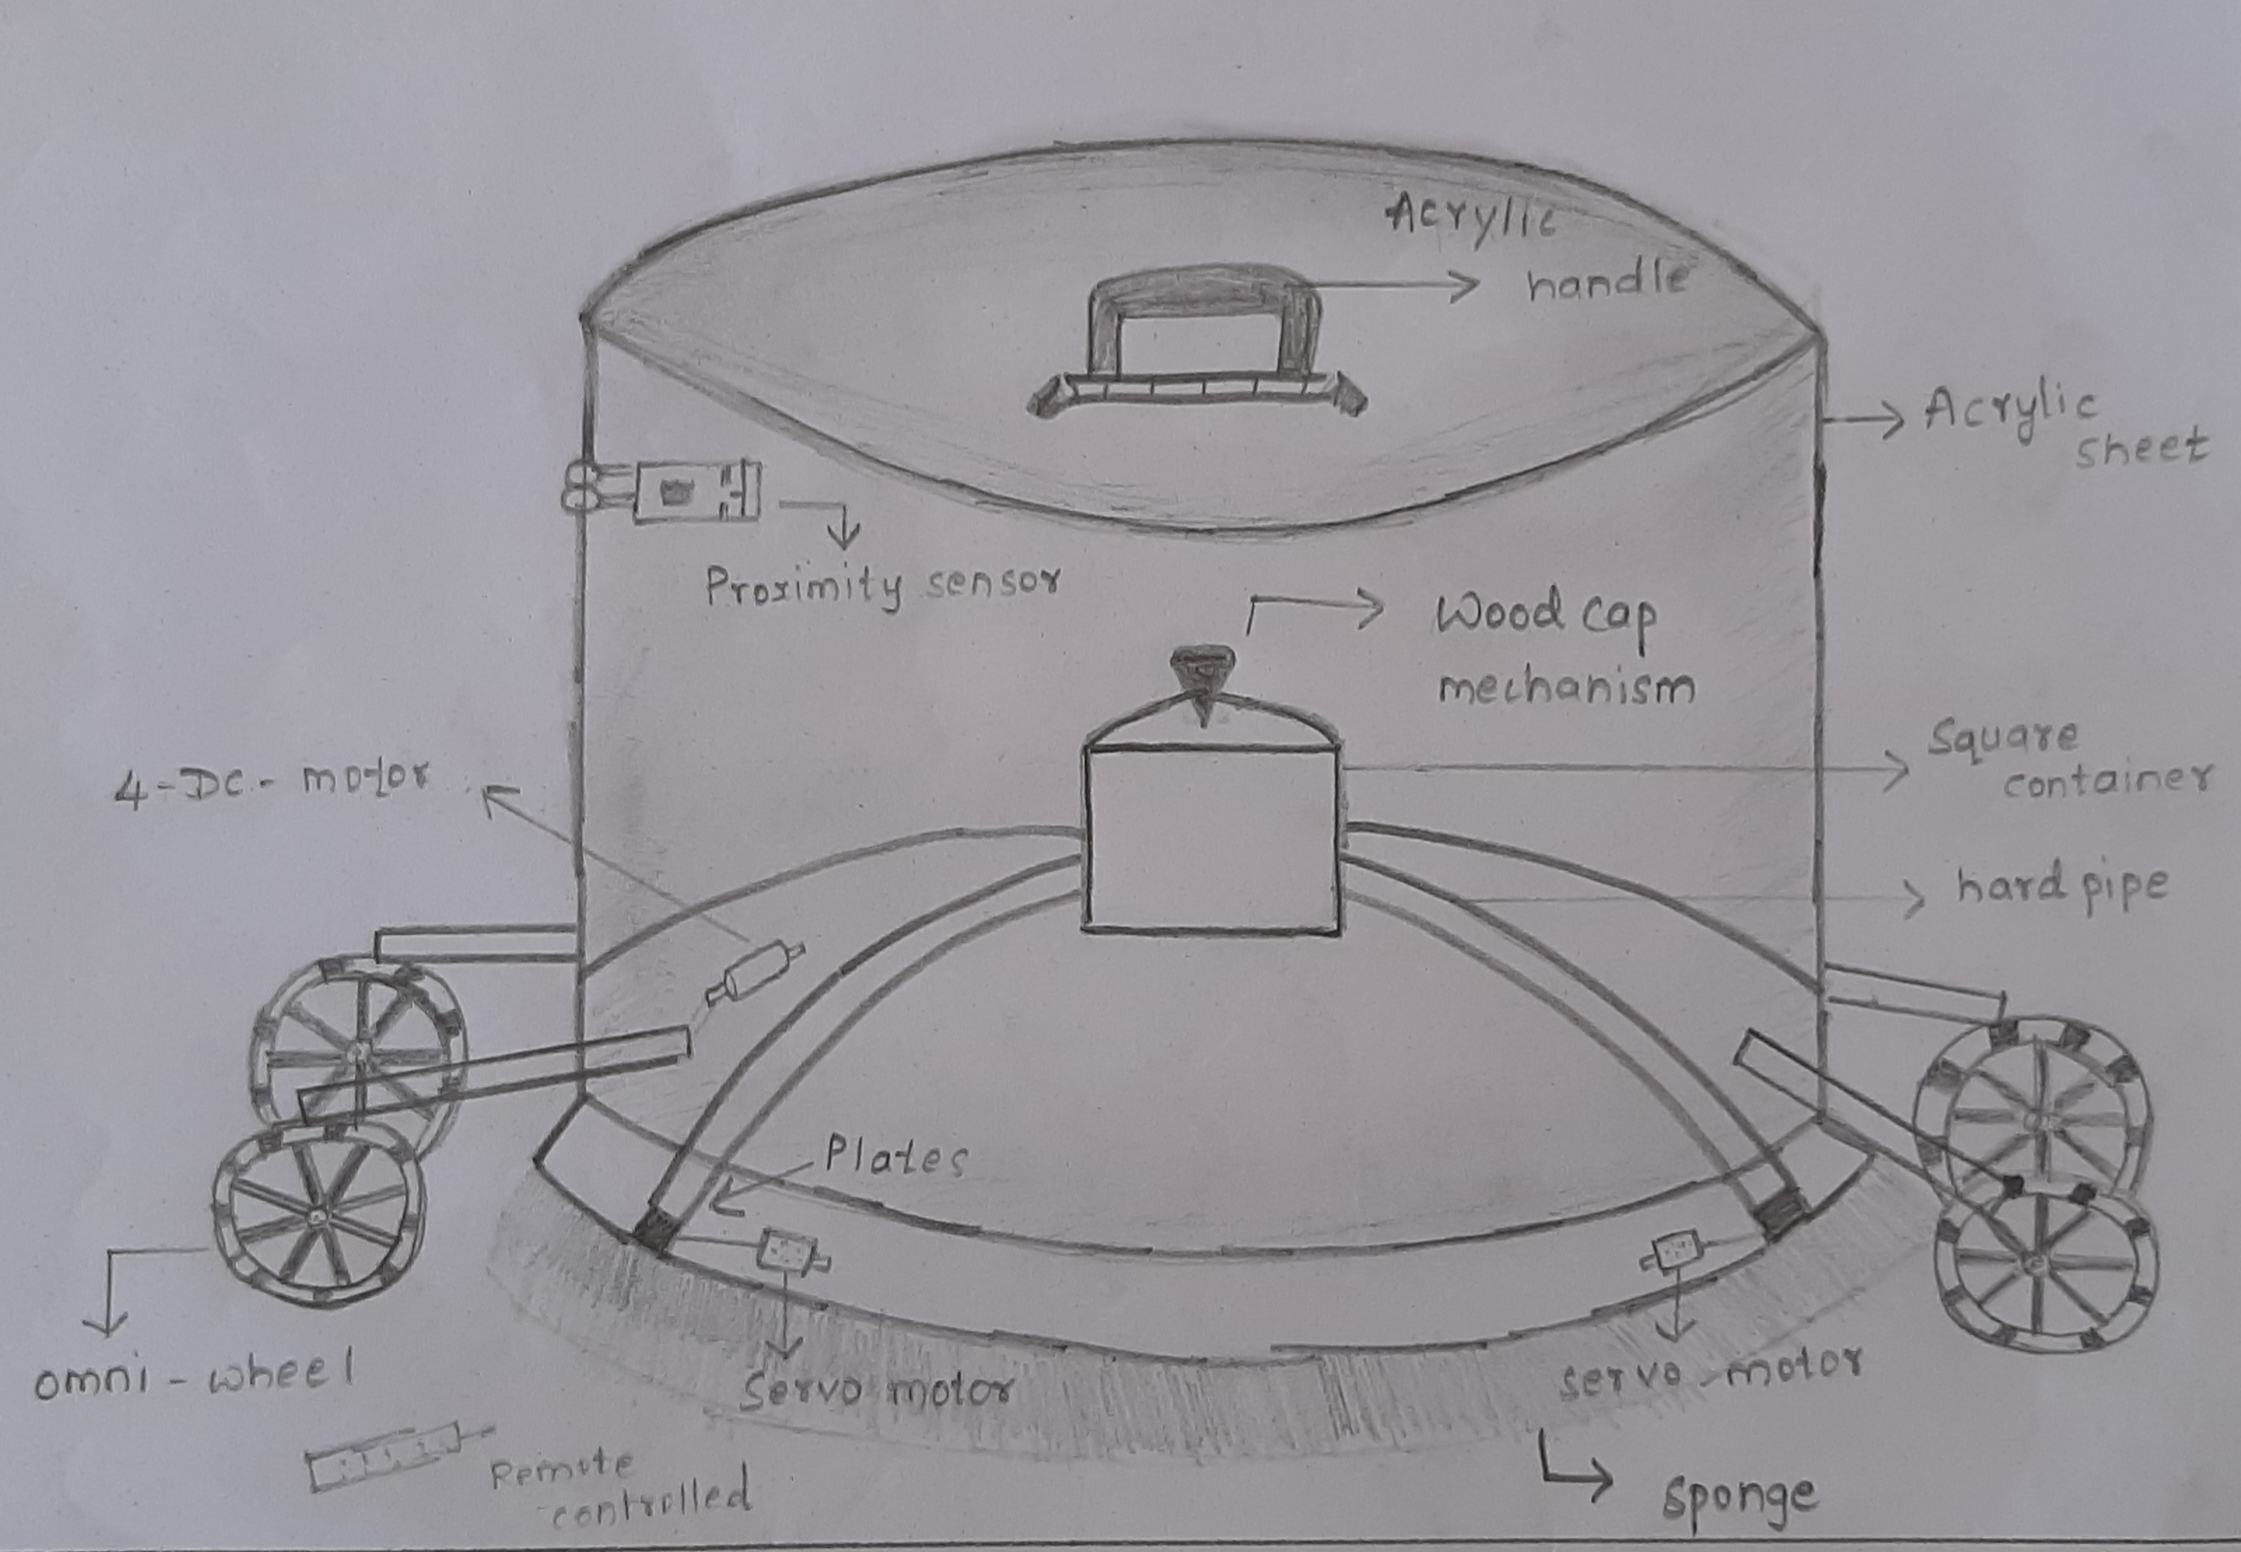 Acrylic
handle
Acrylic
sheet
Proximity sensor
Wood cap
mechanism
Square
container
4-DC- motor
hard pipe
Plates
omni-wheel
Servo motor
servo motor
Remote
controlled
sponge